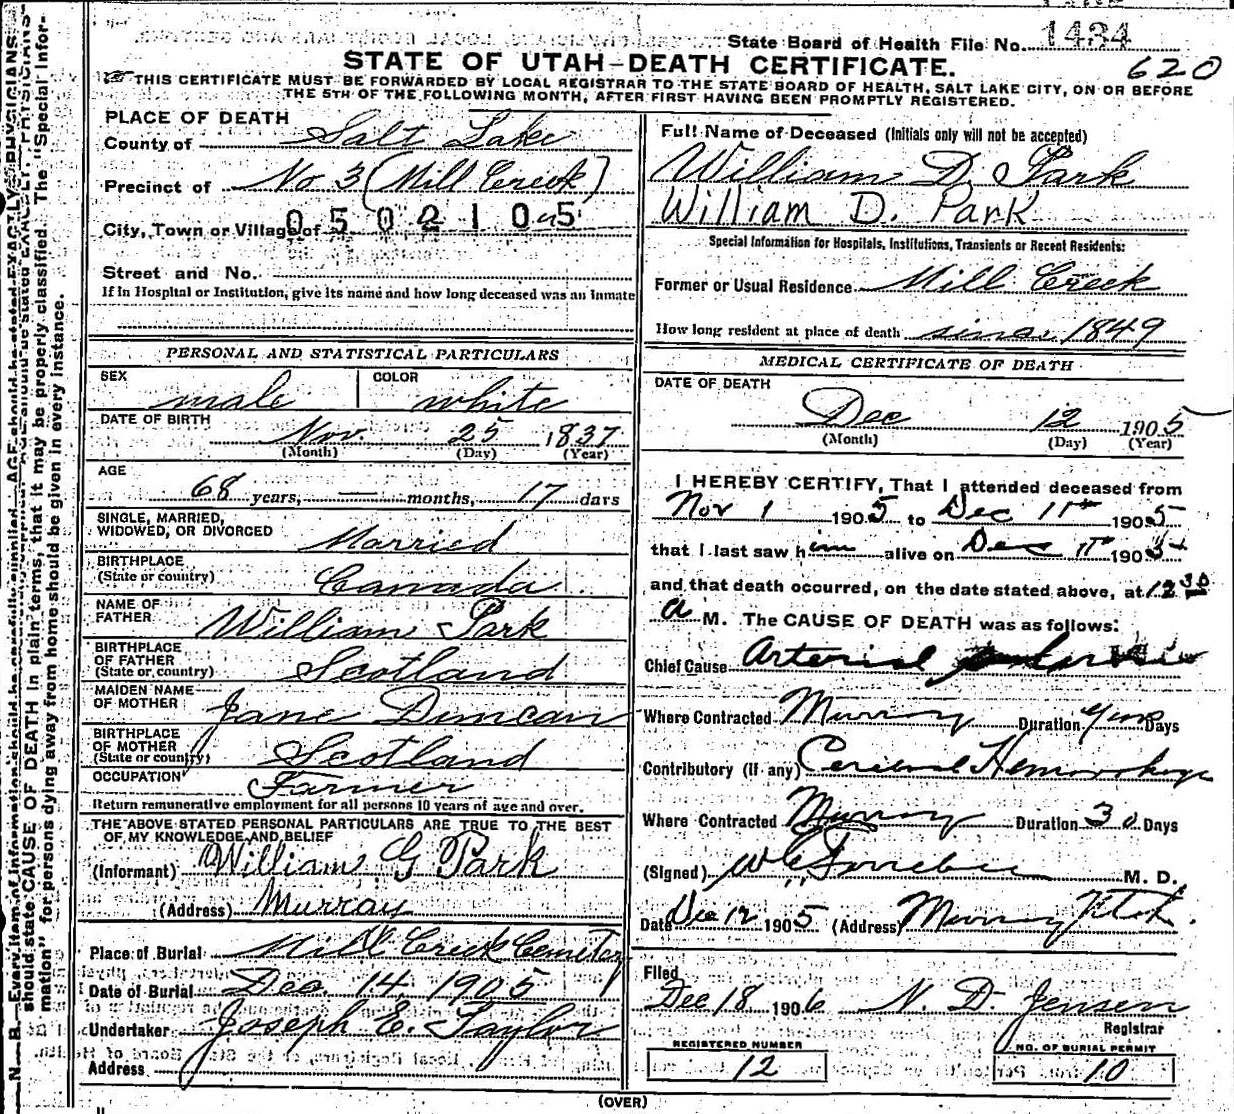 State Board of Health File No. 1434
620
STATE OF UTAH—DEATH CERTIFICATE.
THIS CERTIFICATE MUST BE FORWARDED BY LOCAL REGISTRAR TO THE STATE BOARD OF HEALTH, SALT LAKE CITY, ON OR BEFORE
THE 5TH OF THE FOLLOWING MONTH, AFTER FIRST HAVING BEEN PROMPTLY REGISTERED.
PLACE OF DEATH
County of Salt Lake
Precinct of No 3 (Mill Creek)
City, Town or Village of 0502105
Street and No.
If in Hospital or Institution, give its name and how long deceased was an inmate
PERSONAL AND STATISTICAL PARTICULARS
SEX male COLOR white
DATE OF BIRTH Nov. 25 1837
(Month) (Day) (Year)
AGE 68 years, — months, 17 days
SINGLE, MARRIED,
WIDOWED, OR DIVORCED Married
BIRTHPLACE
(State or country) Canada
NAME OF
FATHER William Park
BIRTHPLACE
OF FATHER
(State or country) Scotland
MAIDEN NAME
OF MOTHER Jane Duncan
BIRTHPLACE
OF MOTHER
(State or country) Scotland
OCCUPATION Farmer
Return remunerative employment for all persons 10 years of age and over.
THE ABOVE STATED PERSONAL PARTICULARS ARE TRUE TO THE BEST
OF MY KNOWLEDGE AND BELIEF
(Informant) William G Park
(Address) Murray
Place of Burial Mill Creek Cemetery
Date of Burial Dec. 14 1905
Undertaker Joseph E. Taylor
Address
Full Name of Deceased (Initials only will not be accepted)
William D. Park
William D. Park
Special Information for Hospitals, Institutions, Transients or Recent Residents:
Former or Usual Residence Mill Creek
How long resident at place of death since 1849
MEDICAL CERTIFICATE OF DEATH
DATE OF DEATH
Dec 12 1905
(Month) (Day) (Year)
I HEREBY CERTIFY, That I attended deceased from
Nov 1 1905 to Dec 11th 1905
that I last saw him alive on Dec 11th 1905
and that death occurred, on the date stated above, at 12 30
a M. The CAUSE OF DEATH was as follows:
Chief Cause Arterial
Where Contracted Murray Duration Days
Contributory (if any) Cerebral Hemorrhage
Where Contracted Murray Duration 30 Days
(Signed) M. D.
Date Dec 12 1905 (Address) Murray Utah.
Filed
Dec 18 1906 N. D. Jensen
Registrar
REGISTERED NUMBER
12
NO. OF BURIAL PERMIT
10
(OVER)
N. B.—Every item of information should be carefully supplied. AGE should be stated EXACTLY. PHYSICIANS
should state CAUSE OF DEATH in plain terms, that it may be properly classified. The "Special Infor-
mation" for persons dying away from home should be given in every instance.